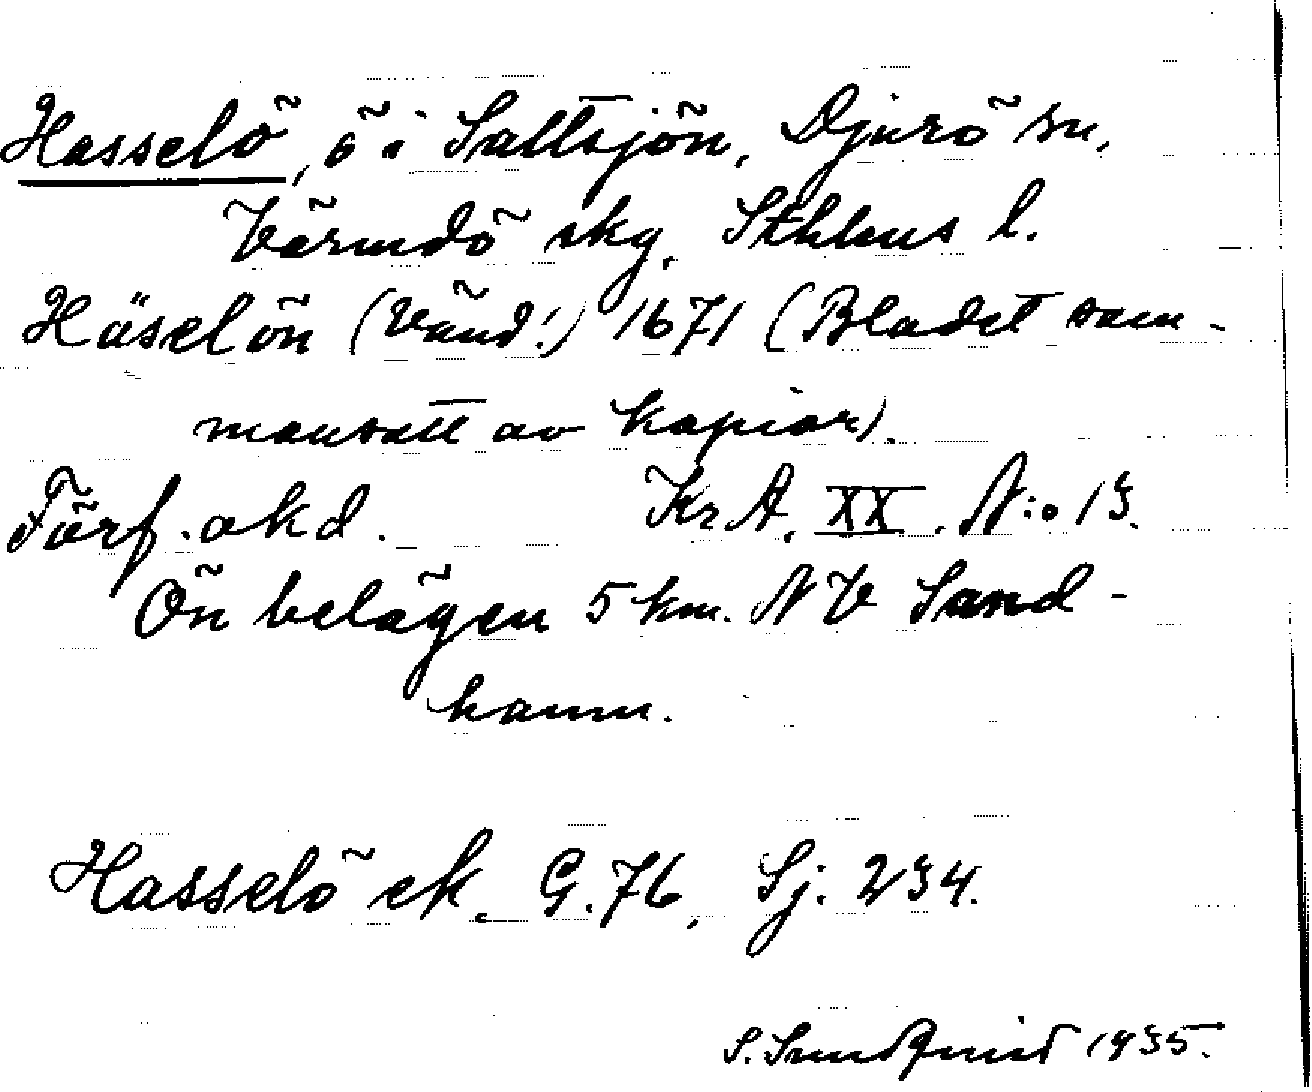 Hasselö, ö i Saltsjön, Djurö sn,
Värmdö skg, Sthlms l.
Häselön (Vänd!) 1671 (Bladet sam-
mansatt av kopior).
Förf. okd. Kr A. XX. N:o 13.
Ön belägen 5 km. NV Sand-
hamn.
Hasselö ek. G. 76, Sj. 234.
S. Sundquist 1935.